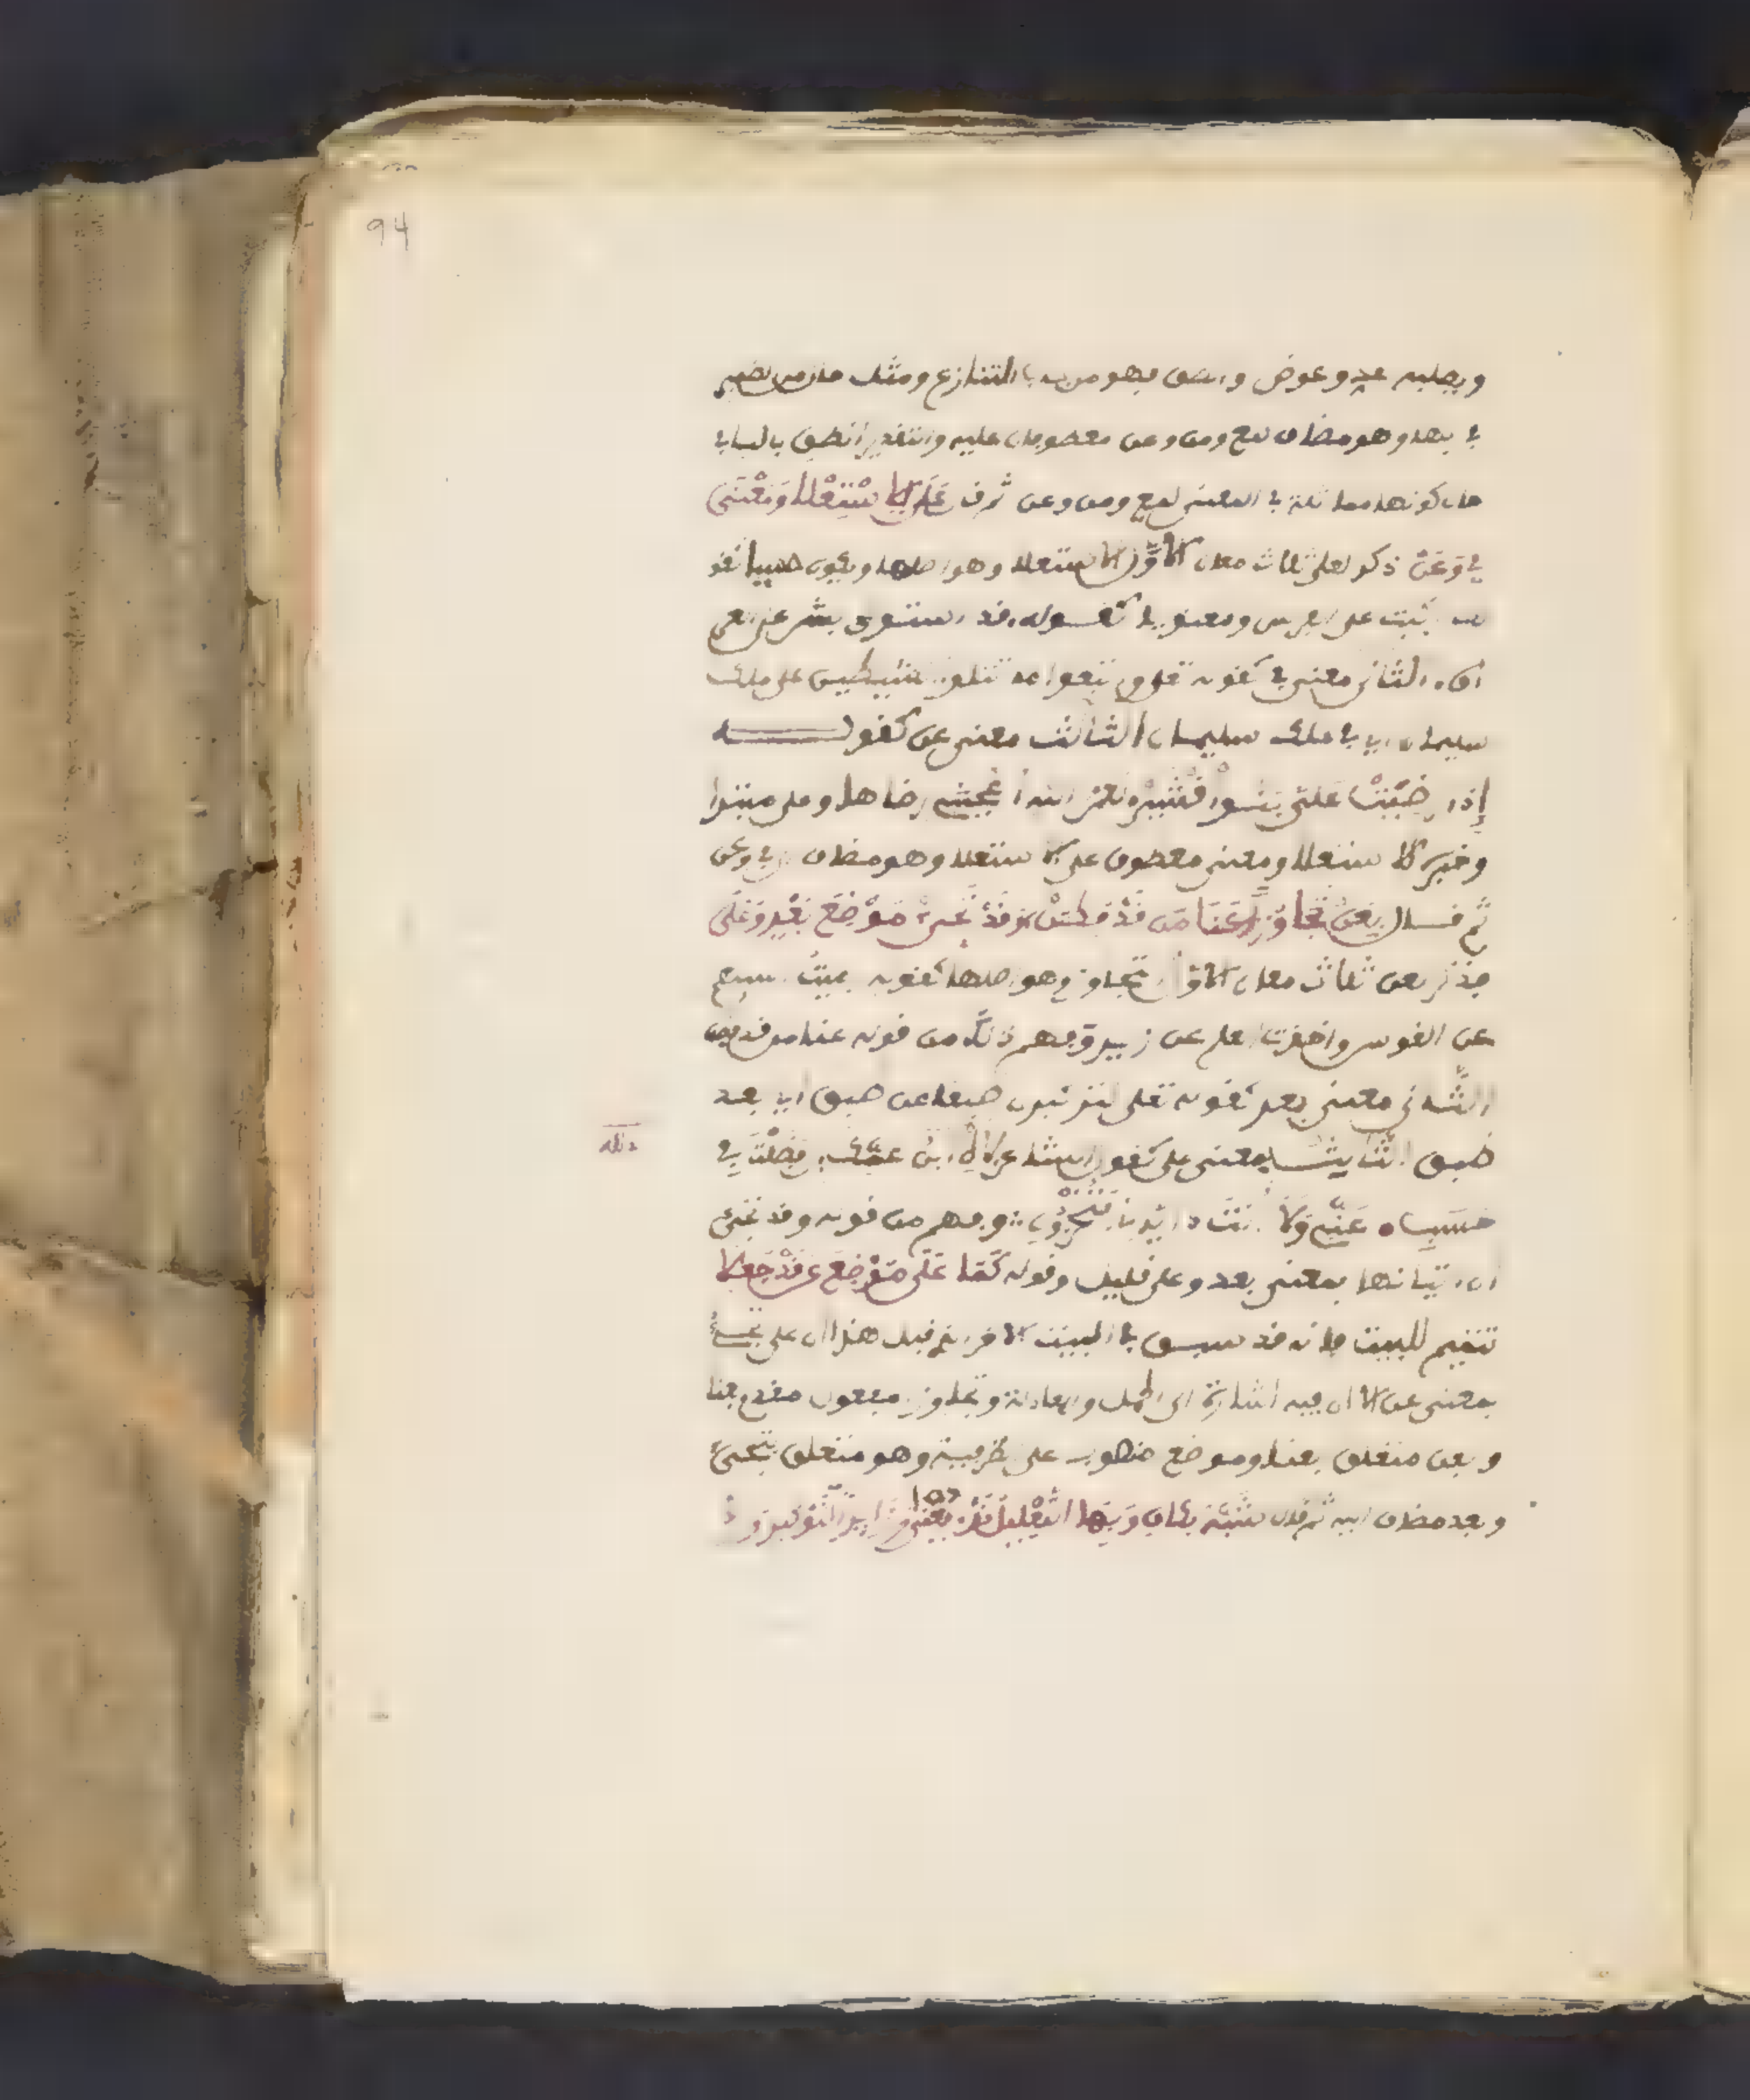 94
ويطلبه عد وعوض والصق فهو من باب التنازع ومثل حال من ضمير
في بها وهو مضاف لمع ومن وعن معطوفان عليه والتقدير انطق بالباء في
حال كونها مماثلة في المعنى لمع ومن وعن ثم قال عَلَى لِلاسْتِعْلَا وَمَعْنَى
فِي وَعَنْ ذكر لعلى ثلاث معان الاوّل الاستعلا وهو اصلها ويكون حسيا نحو
ثبت على الفرس ومعنويا كقوله قد استوى بشر على العر
اق الثاني معنى في كقوله تعلى واتبعوا ما تتلو الشيطين على ملك
سليمان اي في ملك سليمان الثالث معنى عن كقوله
إذا رضيت على بنو قشير لعمر الله أعجبني رضاها وعلى مبتدا
وخبره للاستعلا ومعنى معطوف على الاستعلا وهو مضاف الى في وعن
ثم قال بعن تجاوزا عنا من قد فطن وقد تجي موضع بعد وعلى
فذكر لعن ثلاث معان الاوّل التجاوز وهو اصلها كقوله رميت السهم
عن القوس واخذت العلم عن زيد وفهم ذلك من قوله عنا من قد فطن
الثاني معنى بعد كقوله تعلى لتركبن طبقا عن طبق اي بعد
طبق الثالث معنى على كقول الشاعر لاه ابن عمك لا افضلت في
ذلك
حسب عنّي ولا أنت دياني فتخزوني وفهم من قوله وقد تجي
ان اتيانها بمعنى بعد وعلى قليل وقوله كَمَا عَلَى مَوْضِعَ عن قَدْ جُعِلَا
تتميم للبيت فانه قد سبق في البيت الاخر الذي قبل هذا ان على تجيء
بمعنى عن الا ان فيه اشارة الى الحمل والمعادلة وتجاوزا مفعول مقدم بعنا
وبعن متعلق بعنا وموضع منصوب على الظرفية وهو متعلق بتجيء
وبعد مضاف اليه ثم قال شَبِّهْ بكاف وَبِهَا التعْلِيلُ قَدْ يُعْنَى وَزَايدا لتَوْكيد وَرَدْ